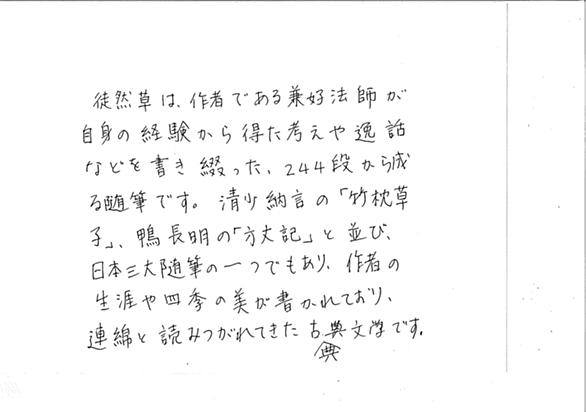 徒然草は、作者である兼好法師が
自身の経験から得た考えや逸話
などを書き綴った、244段から成
る随筆です。清少納言の「竹枕草
子」、鴨長明の「方丈記」と並び、
日本三大随筆の一つでもあり、作者の
生涯や四季の美が書かれており、
連綿と読みつがれてきた古典文学です。
典